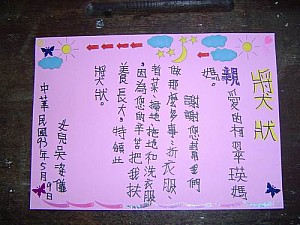 獎狀
親愛的柯翠瑛媽
媽。
謝謝您幫我們
做那麼多事：折衣服、
煮菜、掃地、拖地和洗衣服、
因為您的辛苦把我扶
養長大。特頒此
獎狀。
女兒吳
中華民國93年5月9日